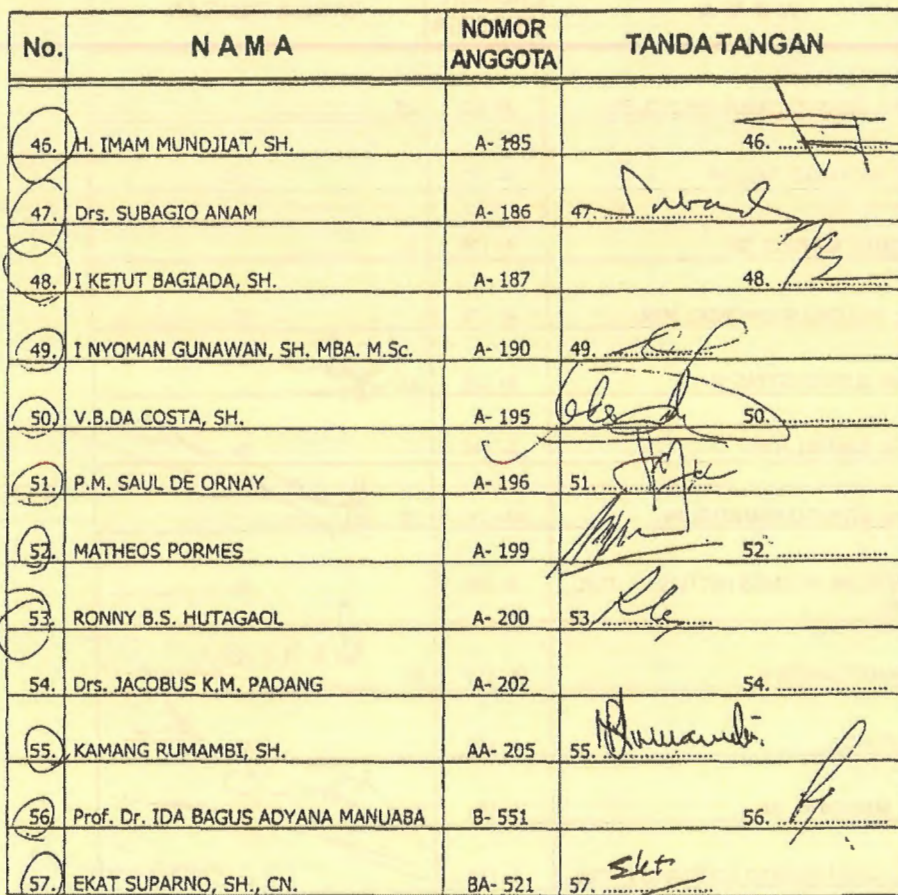 No. N A M A NOMOR ANGGOTA TANDA TANGAN
46. H. IMAM MUNDJIAT, SH. A- 185 46. ....................
47. Drs. SUBAGIO ANAM A- 186 47. ....................
48. I KETUT BAGIADA, SH. A- 187 48. ....................
49. I NYOMAN GUNAWAN, SH. MBA. M.Sc. A- 190 49. ....................
50. V.B.DA COSTA, SH. A- 195 50. ....................
51. P.M. SAUL DE ORNAY A- 196 51. ....................
52. MATHEOS PORMES A- 199 52. ....................
53. RONNY B.S. HUTAGAOL A- 200 53. ....................
54. Drs. JACOBUS K.M. PADANG A- 202 54. ....................
55. KAMANG RUMAMBI, SH. AA- 205 55. ....................
56. Prof. Dr. IDA BAGUS ADYANA MANUABA B- 551 56. ....................
57. EKAT SUPARNO, SH., CN. BA- 521 57. ....................